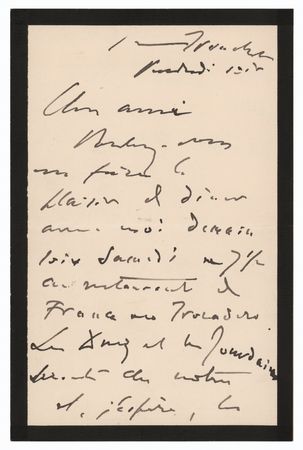 Vendredi soir
Mon ami
Voulez-vous
me faire le
plaisir de dîner
avec moi demain
soir Samedi à 7h ½
au restaurant de
France au Trocadéro
Les et les Jourdain
seront des nôtres
et, j'espère, les